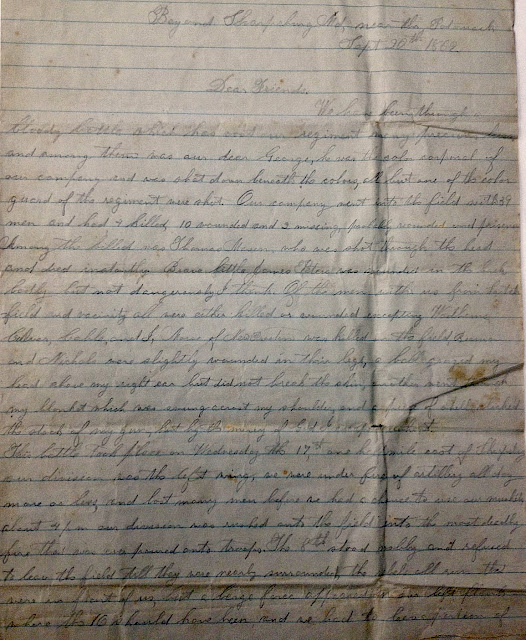 Beyond Sharpsburg Md, near the Potomac
Sept 20th 1862
Dear Friends,
We have been through
bloody battle which has cost our regiment many precious lives
and among them was our dear George, he was the color corporal of
our company and was shot down beneath the colors, all but one of the color
guard of the regiment were shot. Our company went into the field with 39
men and had 4 killed, 10 wounded and 3 missing, probably wounded and prisoners
Among the killed was Thomas who was shot through the head
and died instantly Brave little James was wounded in the back
badly but not dangerously I think. Of the men with us from
field and vicinity all were either killed or wounded excepting
and I, None of was killed the field
and Nichols were slightly wounded in their legs, a ball grazed my
head above my right ear but did not break the skin, another went through
my blanket which was swung across my shoulder and a piece of shell
the stock of my gun, but by the mercy of God I escaped
This battle took place on Wednesday the 17th one half mile east of Sharpsburg
our division was the left wing, we were under fire of artillery all day
more or less, and lost many men before we had a chance to use our muskets
about 4 p.m our division was rushed onto the field into the most deadly
fire that was ever poured onto troops. The 8th stood nobly and refused
to leave the field till they were nearly surrounded, the all run that
were in front of us, but a large force approached on our left flank
where the 16 should have been and we had to leave, a person of